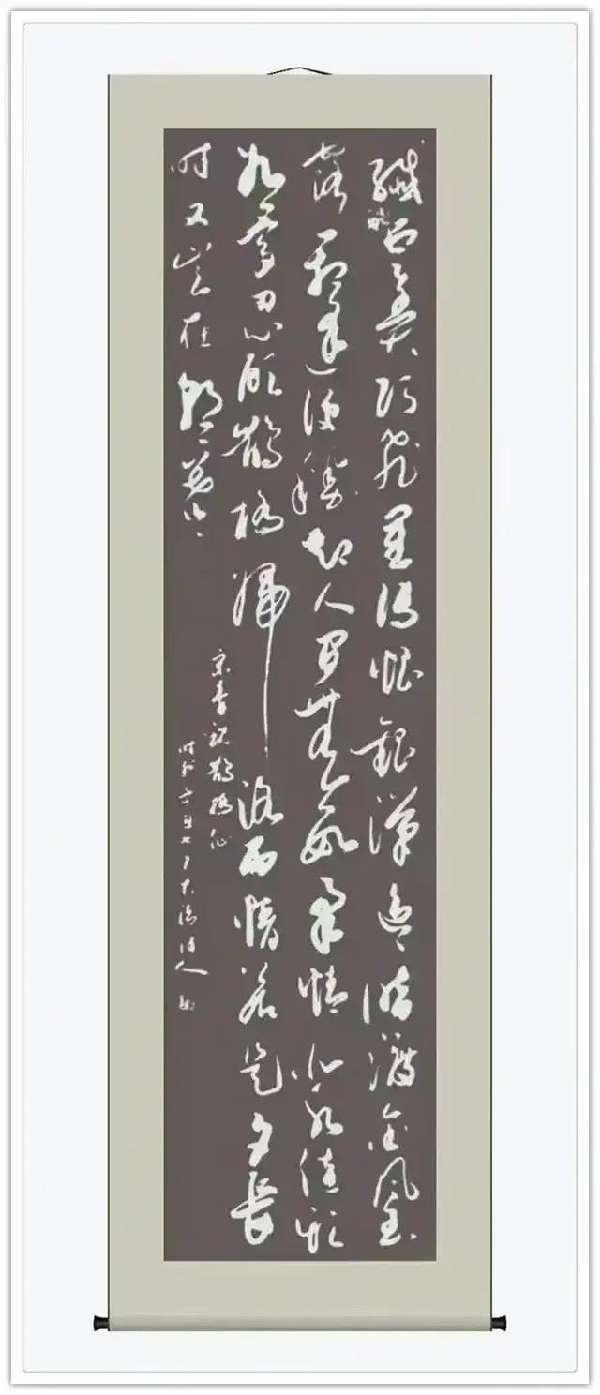 纖云弄巧飛星傳恨銀漢迢迢暗渡金風玉
露一相逢便勝卻人間無數柔情似水佳期
如夢忍顧鵲橋歸路兩情若是久長
时又豈在朝朝暮暮
宋秦觀鵲橋仙
時於辛丑七夕